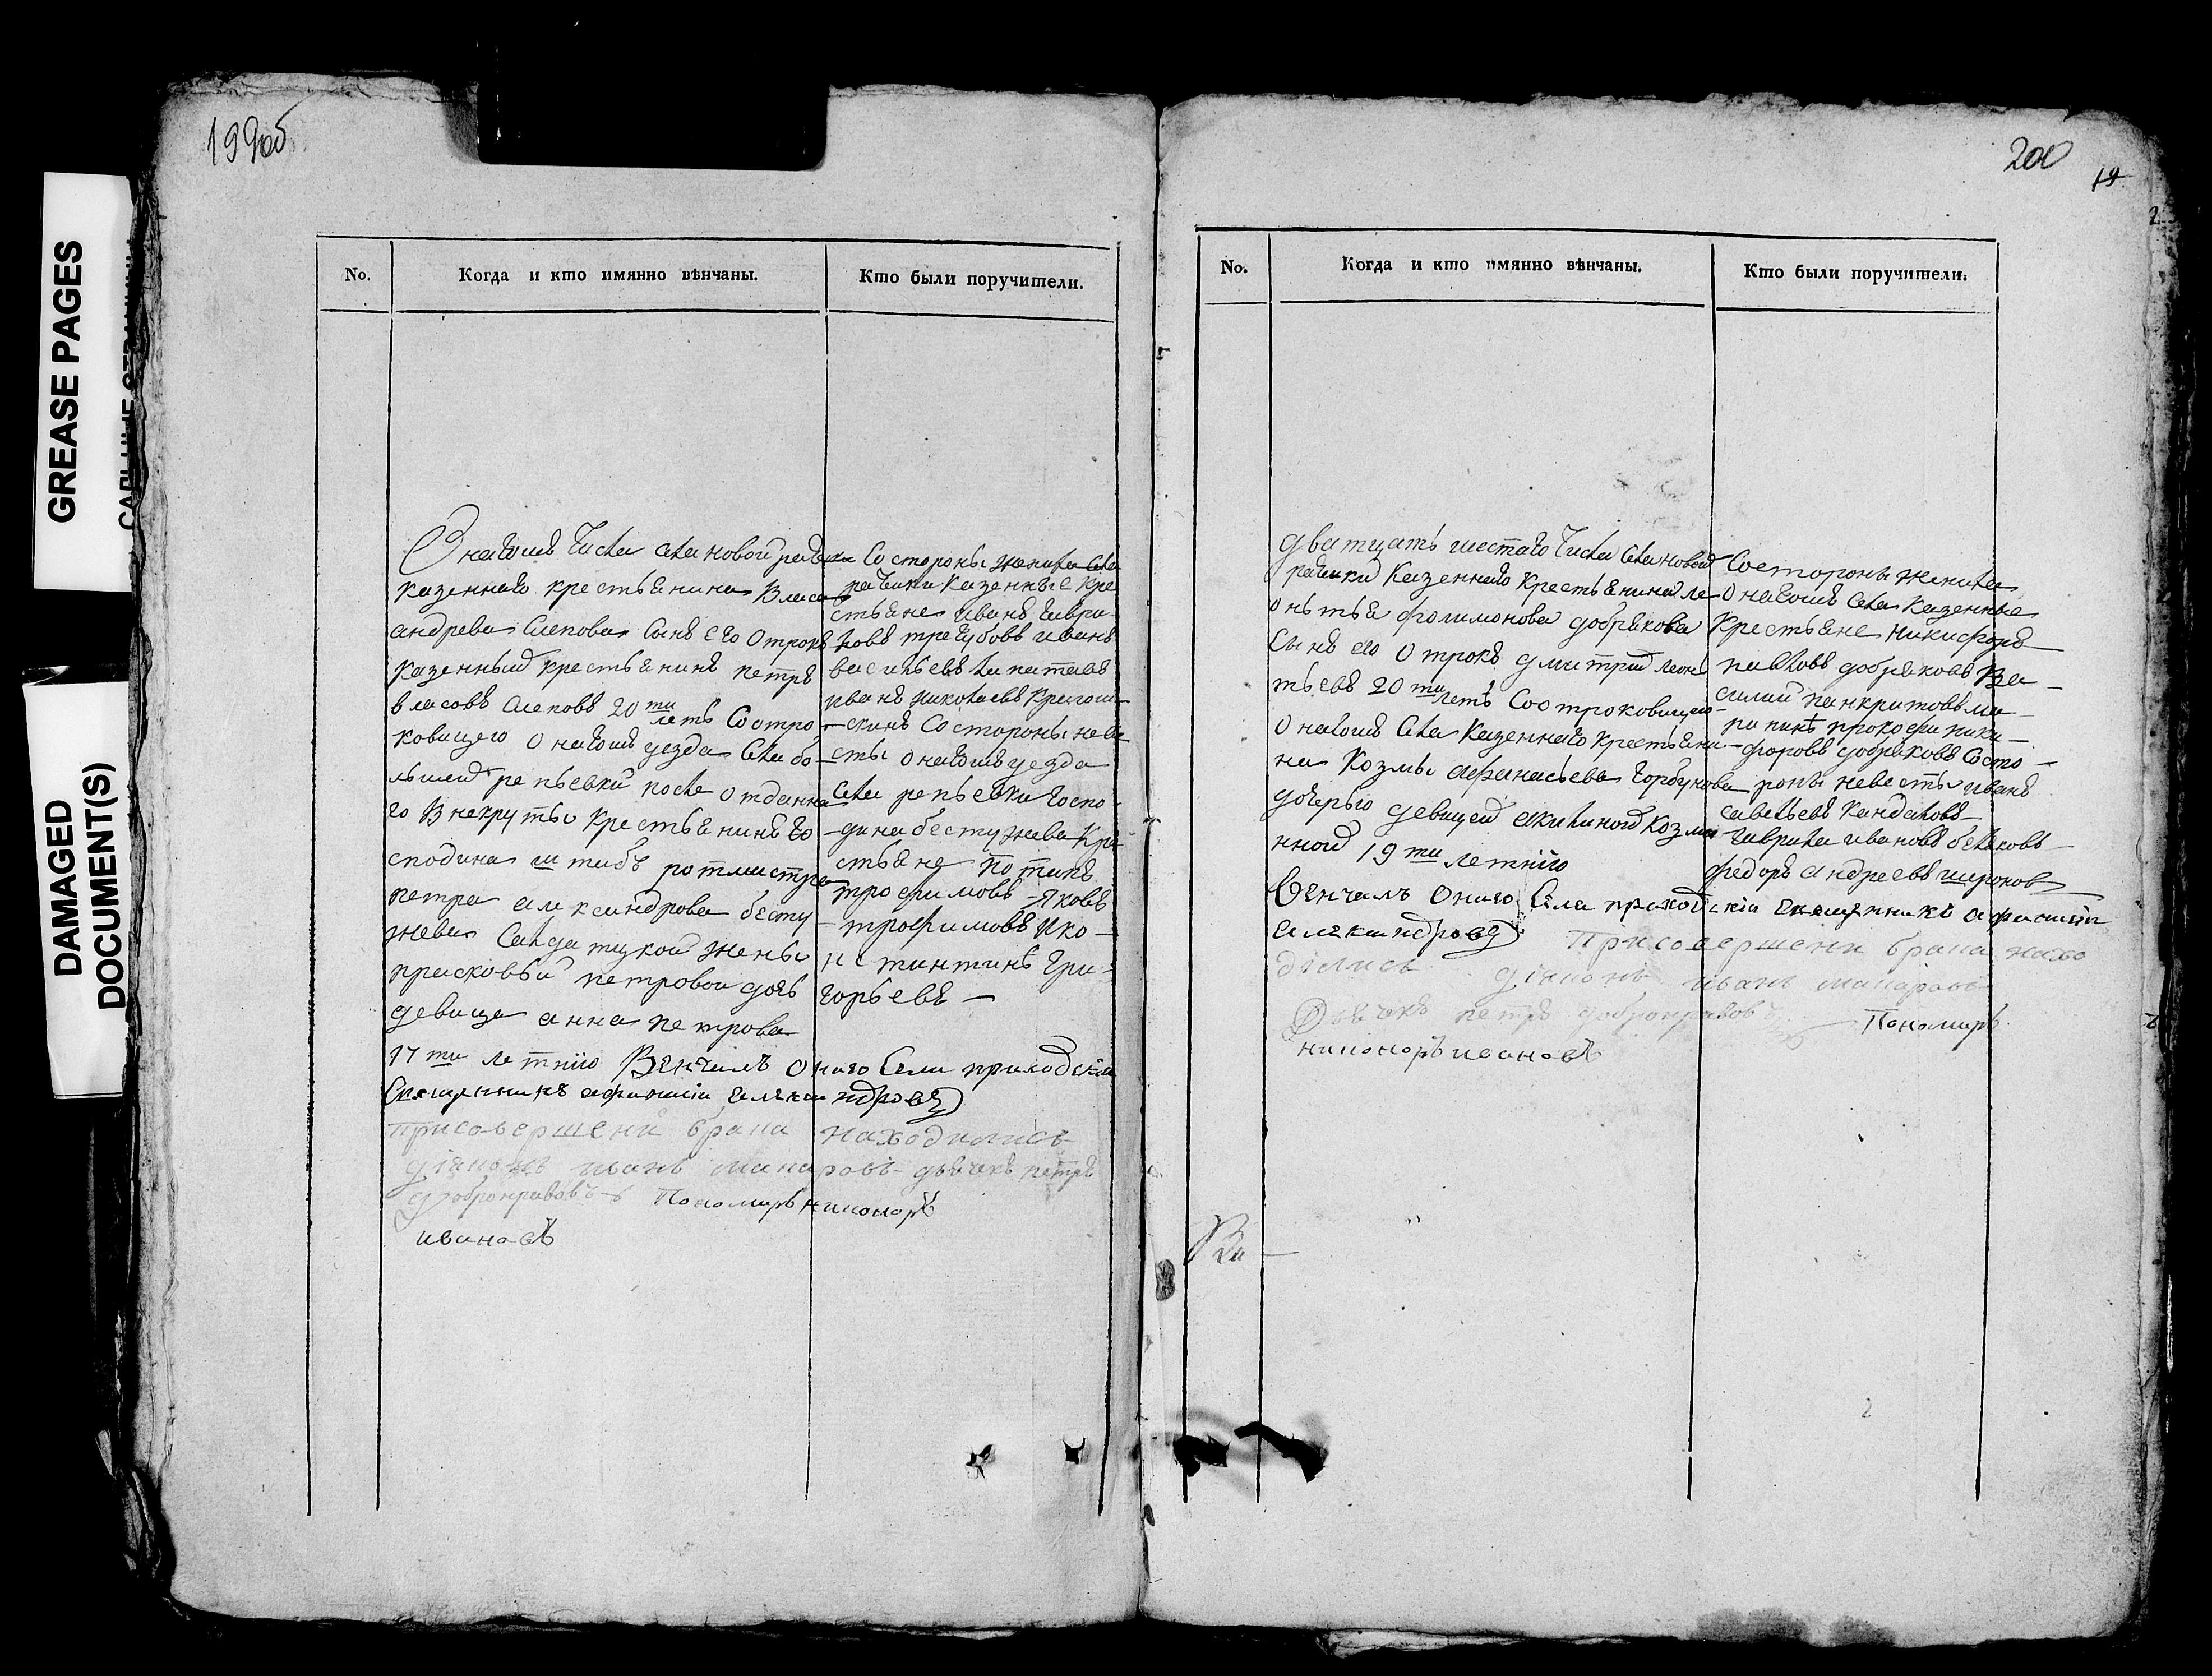 GREASE PAGES
DAMAGED
DOCUMENT(S)
199об
No.
Когда и кто имянно вѣнчаны.
Кто были поручители.
Онагожъ Числа села новой рачейки
казеннаго крестьянина Власа
андрева Слепова Сынъ его Отрокъ
казенный крестьянинъ петръ
власовъ Слеповъ 20ти летъ Соотро
ковицею Онагожъ уезда Села бо
льшей репьевки после отданна
го Внекруты крестьянина го
сподина штабъ ротмистра
петра александрова бесту
жева Салдатцкой жены
прасковьи петровой дочь
девица анна петрова
17ти летнiю Венчалъ онаго Села приходскiй
Священникъ афанасiй Александровъ
присовершени брака находились
дiяконъ иванъ макаровъ дьячекъ петръ
добронравовъ Пономарь никоноръ
ивановъ
Состороны жениха Села
рачейки казенные кре
стьяне иванъ гаври
ловъ трегубовъ иванъ
васильевъ
иванъ николаевъ
скинъ Состороны неве
сты онагожъ уезда
Села репьевки госпо
дина бестужева кре
стьяне потапъ
трофимовъ яковъ
трофимовъ ико
нстинтинъ гри
горьевъ
200
19
No.
Когда и кто имянно вѣнчаны.
Кто были поручители.
дватцать шестаго Числа Села новой
рачейки казеннаго крестьянина ле
онтья филимонова добрякова
Сынъ его Отрокъ дмитрий леон
тьевъ 20ти летъ Соотроковицею
Онагожъ Села казеннаго крестьяни
на Козмы афанасьева горбунова
дочерью девицей акилиной козми
нной 19ти летнiю
Венчалъ онаго Села приходскiй Священникъ афанасiй
Александровъ присовершени брака нахо
дились дiяконъ иванъ макаровъ
Дьячекъ петръ добронравовъ Пономарь
никоноръ ивановъ
Состороны жениха
Онагожъ Села казенные
крестьяне никифоръ
павловъ добряковъ Ва
силий панкратовъ ма
рининъ прокофи ники
форовъ добряковъ Состо
роны невесты иванъ
савельевъ кандаловъ
гаврила ивановъ беляковъ
федоръ андреевъ широковъ